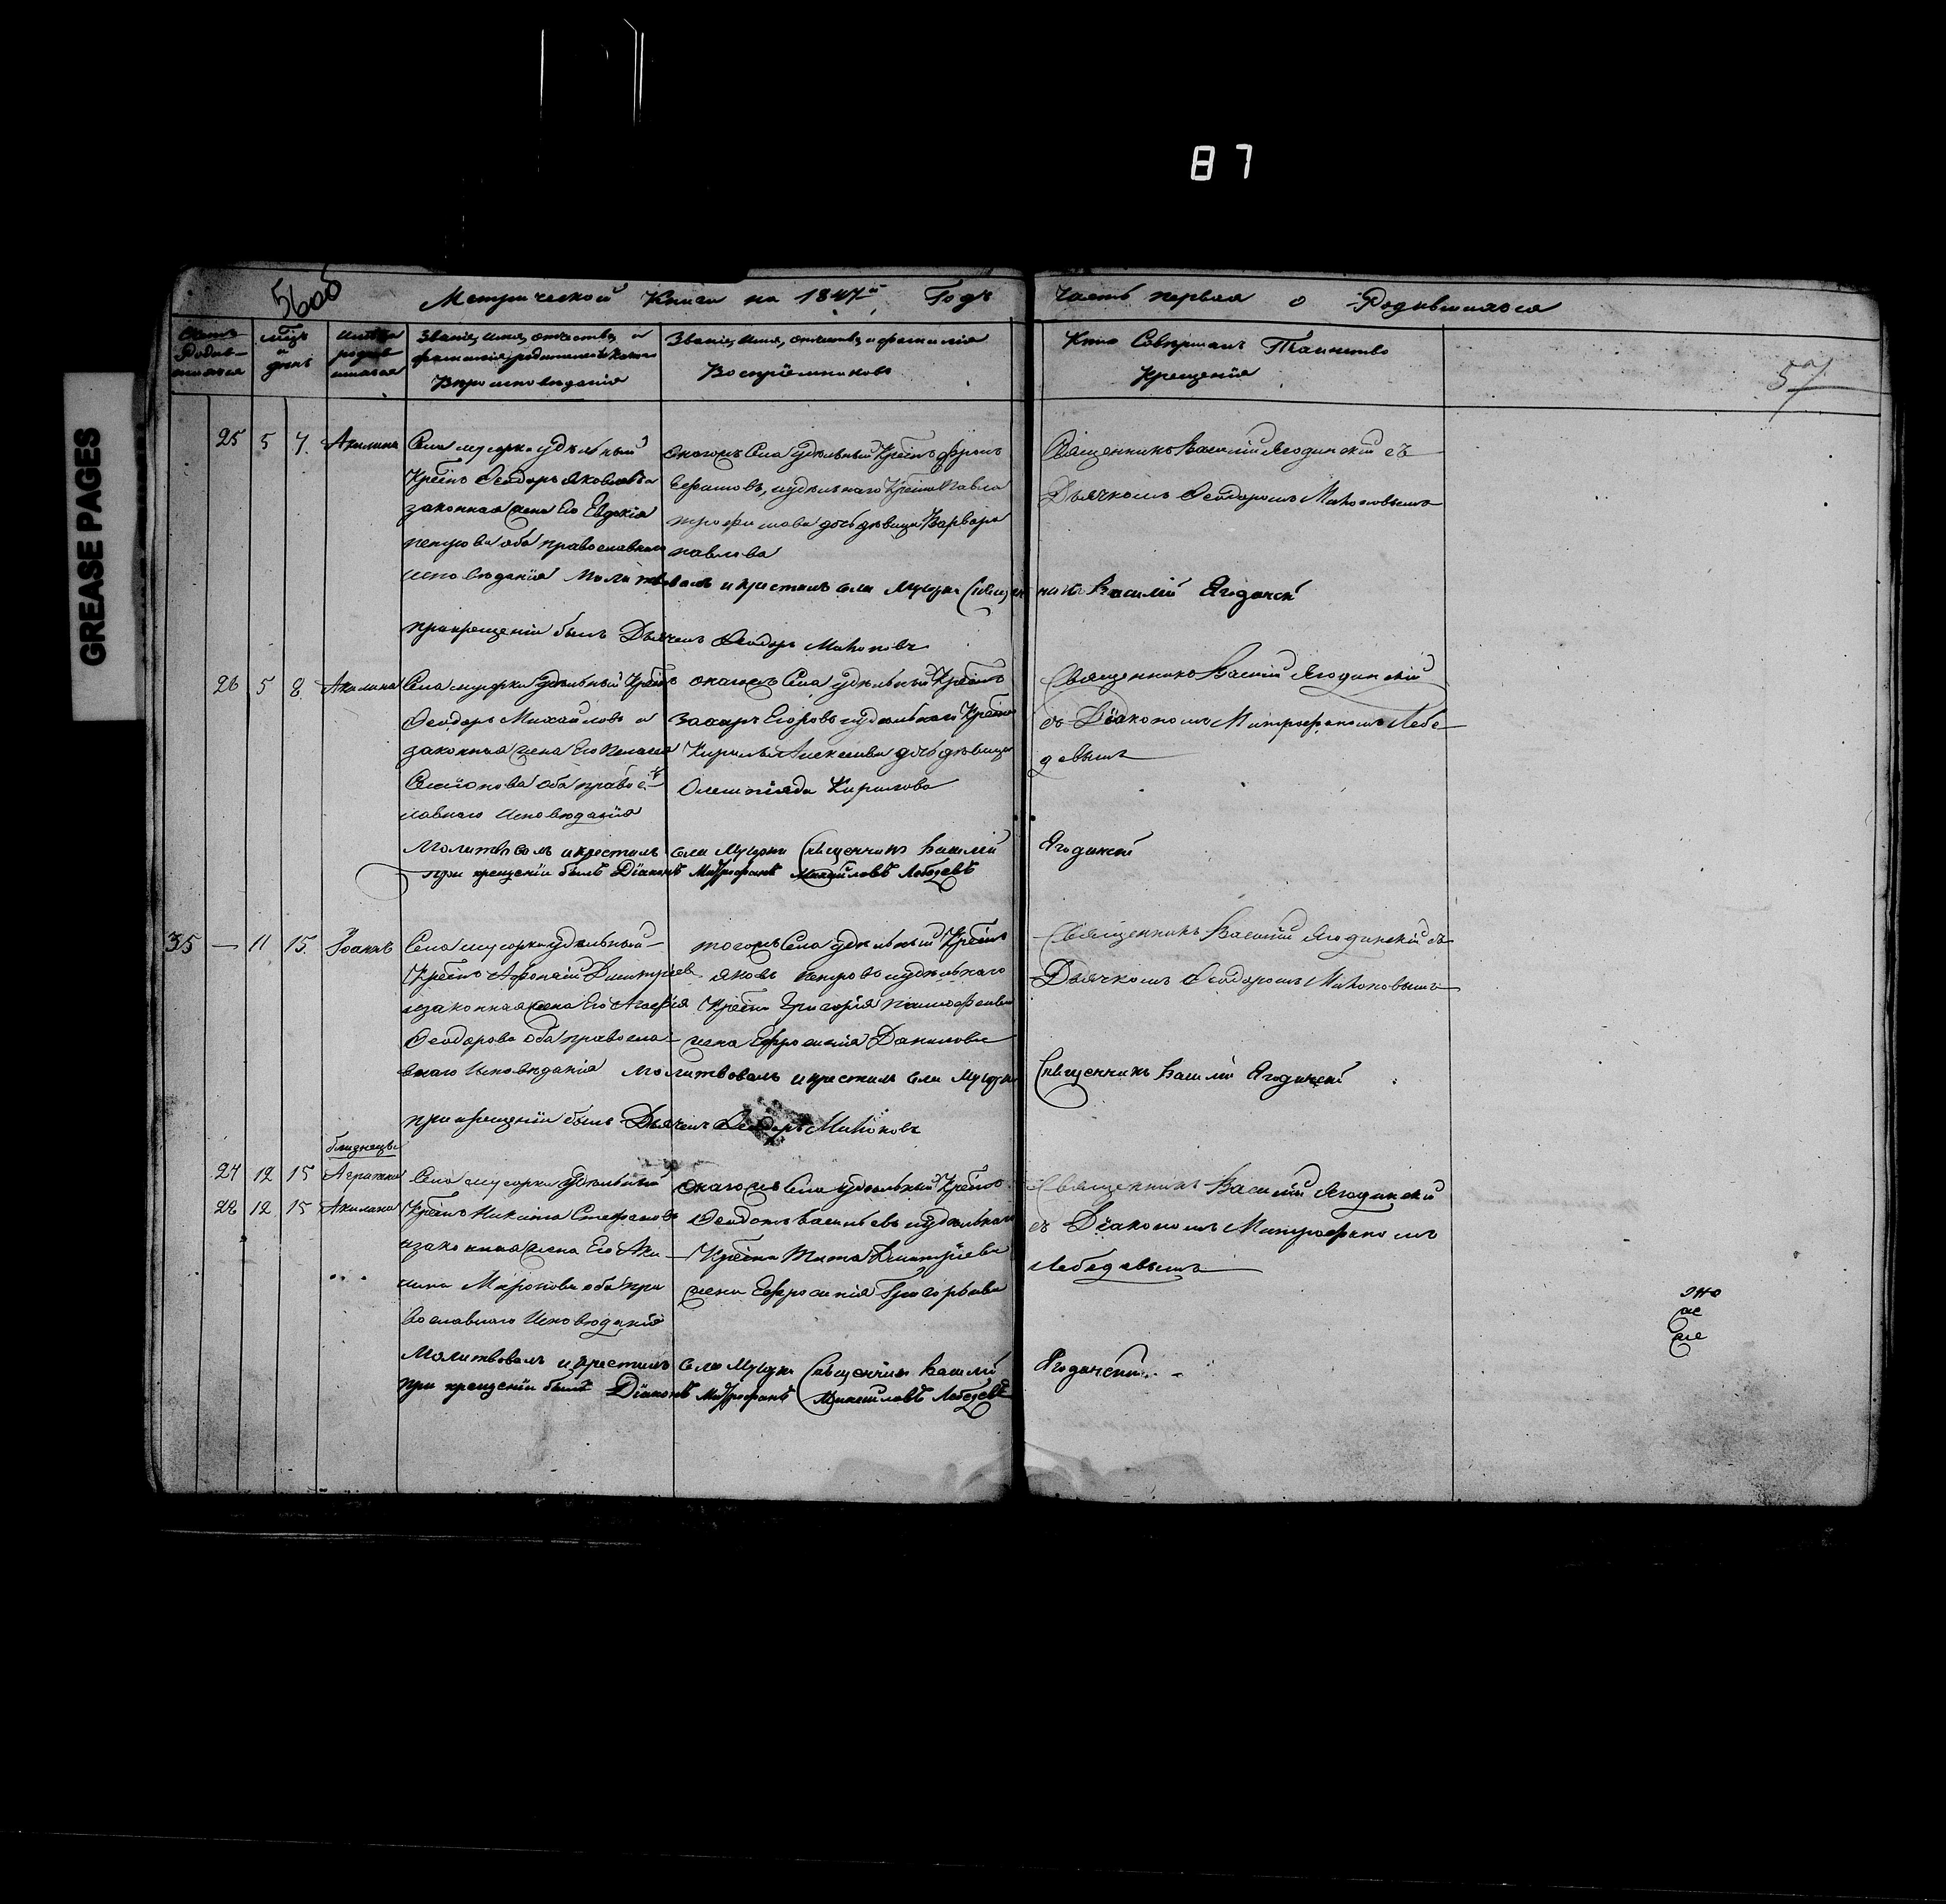 87
GREASE PAGES
560об
Метрической Книги на 1847й Годъ
Часть первая о Родившихся
57
Счетъ Родив-шихся
мѣсяцъ и день
имена родив-шихся
Званіе, имя, отчество, и
фамилія родителей и какого
Вѣроисповѣданія
Званіе, имя, отчество, и фамилія
Воспріемниковъ
Кто Совершалъ Таинство
Крещенія
25 5 7. Акилина
Села мусорки удѣльный
Крестнъ Ѳеодоръ Яковлевъ и
законная жена Его Евдокія
петрова оба православнаго
исповѣданія
онагожъ Села удѣльный Крестнъ
удѣльнаго Крестна Павла
трофимова дочь дѣвица Варвара
павлова
Священникъ Василій Ягодинскій съ
Дьячкомъ Ѳеодоромъ
Молитвовалъ и крестилъ села Мусорки Священникъ Василій Ягодинскій
при крещеніи былъ Дьячекъ Ѳеодоръ
26 5 8 Акилина
Села мусорки удѣльный Крестнъ
Ѳеодоръ Михайловъ и
законная жена Его Пелагея
Семіонова оба правос-
лавнаго исповѣданія
онагожъ Села удѣльный Крестнъ
Захаръ Егоровъ и удѣльнаго Крестна
Кирила Алексѣева дочь дѣвица
Олимпіяда Кирилова
Священникъ Василій Ягодинскій
съ Діакономъ Митрофаномъ Лебе-
девымъ
Молитвовалъ и крестилъ села Мусорки Священникъ Василій Ягодинскій
при крещеніи былъ Діаконъ Митрофанъ Михайловъ Лебедевъ
35 — 11 15. Іоаннъ
Села мусорки удѣльный
Крестнъ Аѳонасій Димитріев
и законная жена Его Агафія
Ѳеодорова оба правосла-
внаго исповѣданія
тогожъ Села удѣльный Крестнъ
Яковъ Петровъ и удѣльнаго
Крестна Григорія тимофеева
жена Ефросинія Данилова
Священникъ Василій Ягодинскій съ
Дьячкомъ Ѳеодоромъ
Молитвовалъ и крестилъ села Мусорки Священникъ Василій Ягодинскій
при крещеніи былъ Дьячекъ Ѳеодоръ
близнецы
27 12 15 Агрипина
28 12 15 Акилина
Села мусорки удѣльный
Крестнъ Никита Стефановъ
и законная жена Его Аки-
лина Миронова оба пра-
вославнаго исповѣданія
онагожъ Села удѣльный Крестнъ
Ѳедотъ Васильевъ и удѣльнаго
Крестна Тита Димитріева
жена Ефросинія Григорьева
Священникъ Василій Ягодинскій
съ Діакономъ Митрофаномъ
Лебедевымъ
Молитвовалъ и крестилъ села Мусорки Священникъ Василій Ягодинскій
при крещеніи былъ Діаконъ Митрофанъ Михайловъ Лебедевъ